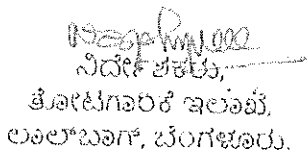 ನಿರ್ದೇಶಕರು,
ತೋಟಗಾರಿಕೆ ಇಲಾಖೆ,
ಲಾಲ್‌ಬಾಗ್, ಬೆಂಗಳೂರು.